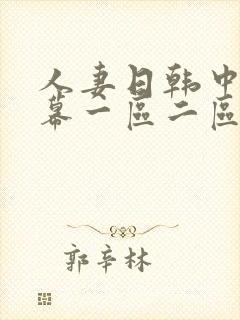 人妻日韩中
幕一區二區
郭辛林